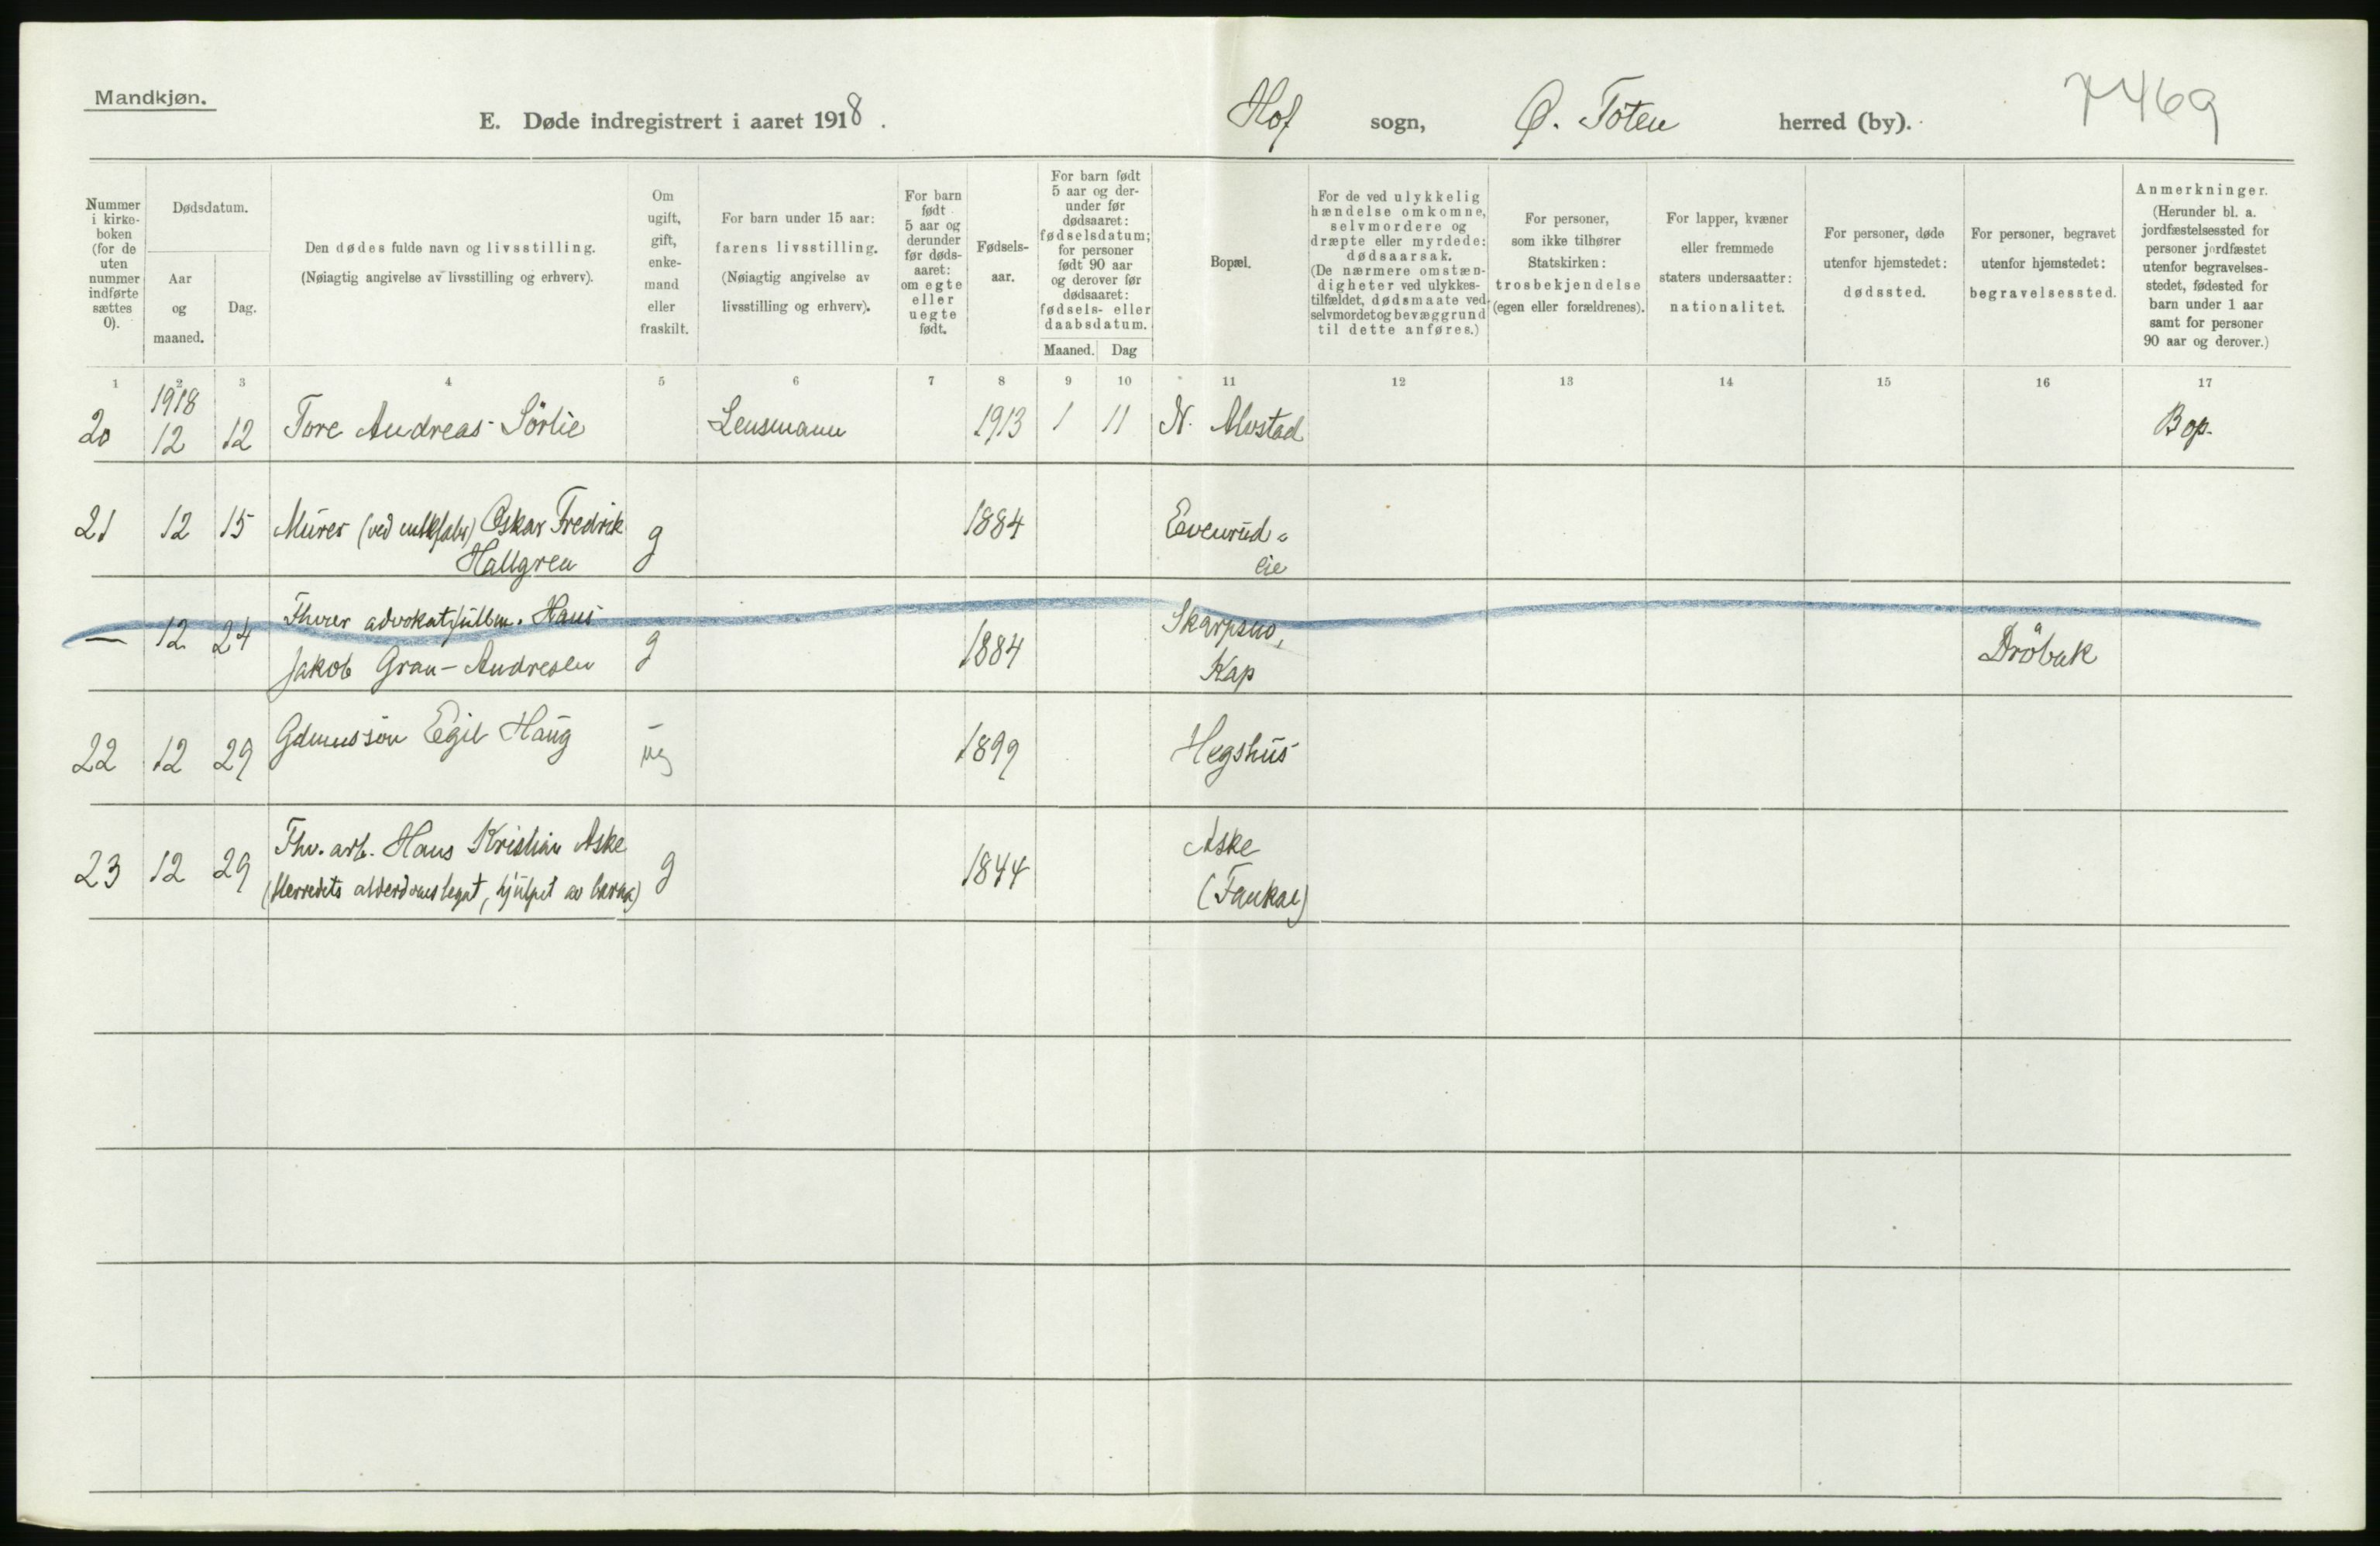 Mandkjøn.
E. Døde indregistrert i aaret 1918.
Hof sogn, Ø. Toten herred (by).
7469
Nummer i kirke- boken (for de uten nummer indførte sættes 0).
Dødsdatum.
Aar og maaned.
Dag.
Den dødes fulde navn og livsstilling.
(Nøiagtig angivelse av livsstilling og erhverv).
Om ugift, gift, enke- mand eller fraskilt.
For barn under 15 aar:
farens livsstilling.
(Nøiagtig angivelse av
livsstilling og erhverv).
For barn født 5 aar og derunder før døds- aaret: om egte eller uegte født.
Fødsels- aar.
For barn født 5 aar og der- under før dødsaaret: fødselsdatum; for personer født 90 aar og derover før dødsaaret: fødsels- eller daabsdatum.
Maaned. Dag
Bopæl.
For de ved ulykkelig hændelse omkomne, selvmordere og dræpte eller myrdede: dødsaarsak. (De nærmere omstæn- digheter ved ulykkes- tilfældet, dødsmaate ved selvmordet og bevæggrund til dette anføres.)
For personer, som ikke tilhører Statskirken: trosbekjendelse (egen eller forældrenes).
For lapper, kvæner eller fremmede staters undersaatter: nationalitet.
For personer, døde utenfor hjemstedet: dødssted.
For personer, begravet utenfor hjemstedet: begravelsessted.
Anmerkninger. (Herunder bl. a. jordfæstelsessted for personer jordfæstet utenfor begravelses- stedet, fødested for barn under 1 aar samt for personer 90 aar og derover.)
1 2 3 4 5 6 7 8 9 10 11 12 13 14 15 16 17
1918
20 12 12 Tore Andreas Sörlie Lensmann 1913 1 11 N. Alvstad Bop.
21 12 15 Murer (ved Oskar Fredrik g 1884 Evenrud-
Hallgren eie
— 12 24 advokatfullm. Hans Skarpsno,
Jakob Gran-Andresen g 1884 Kap Dröbak
22 12 29 Gdmussön Egil Haug - ug 1899 Hegshus
23 12 29 Fhv. arb. Hans Kristian Aske g 1844 Aske
(Herredets alderdomslegat, hjulpet av barna) (Faukal)